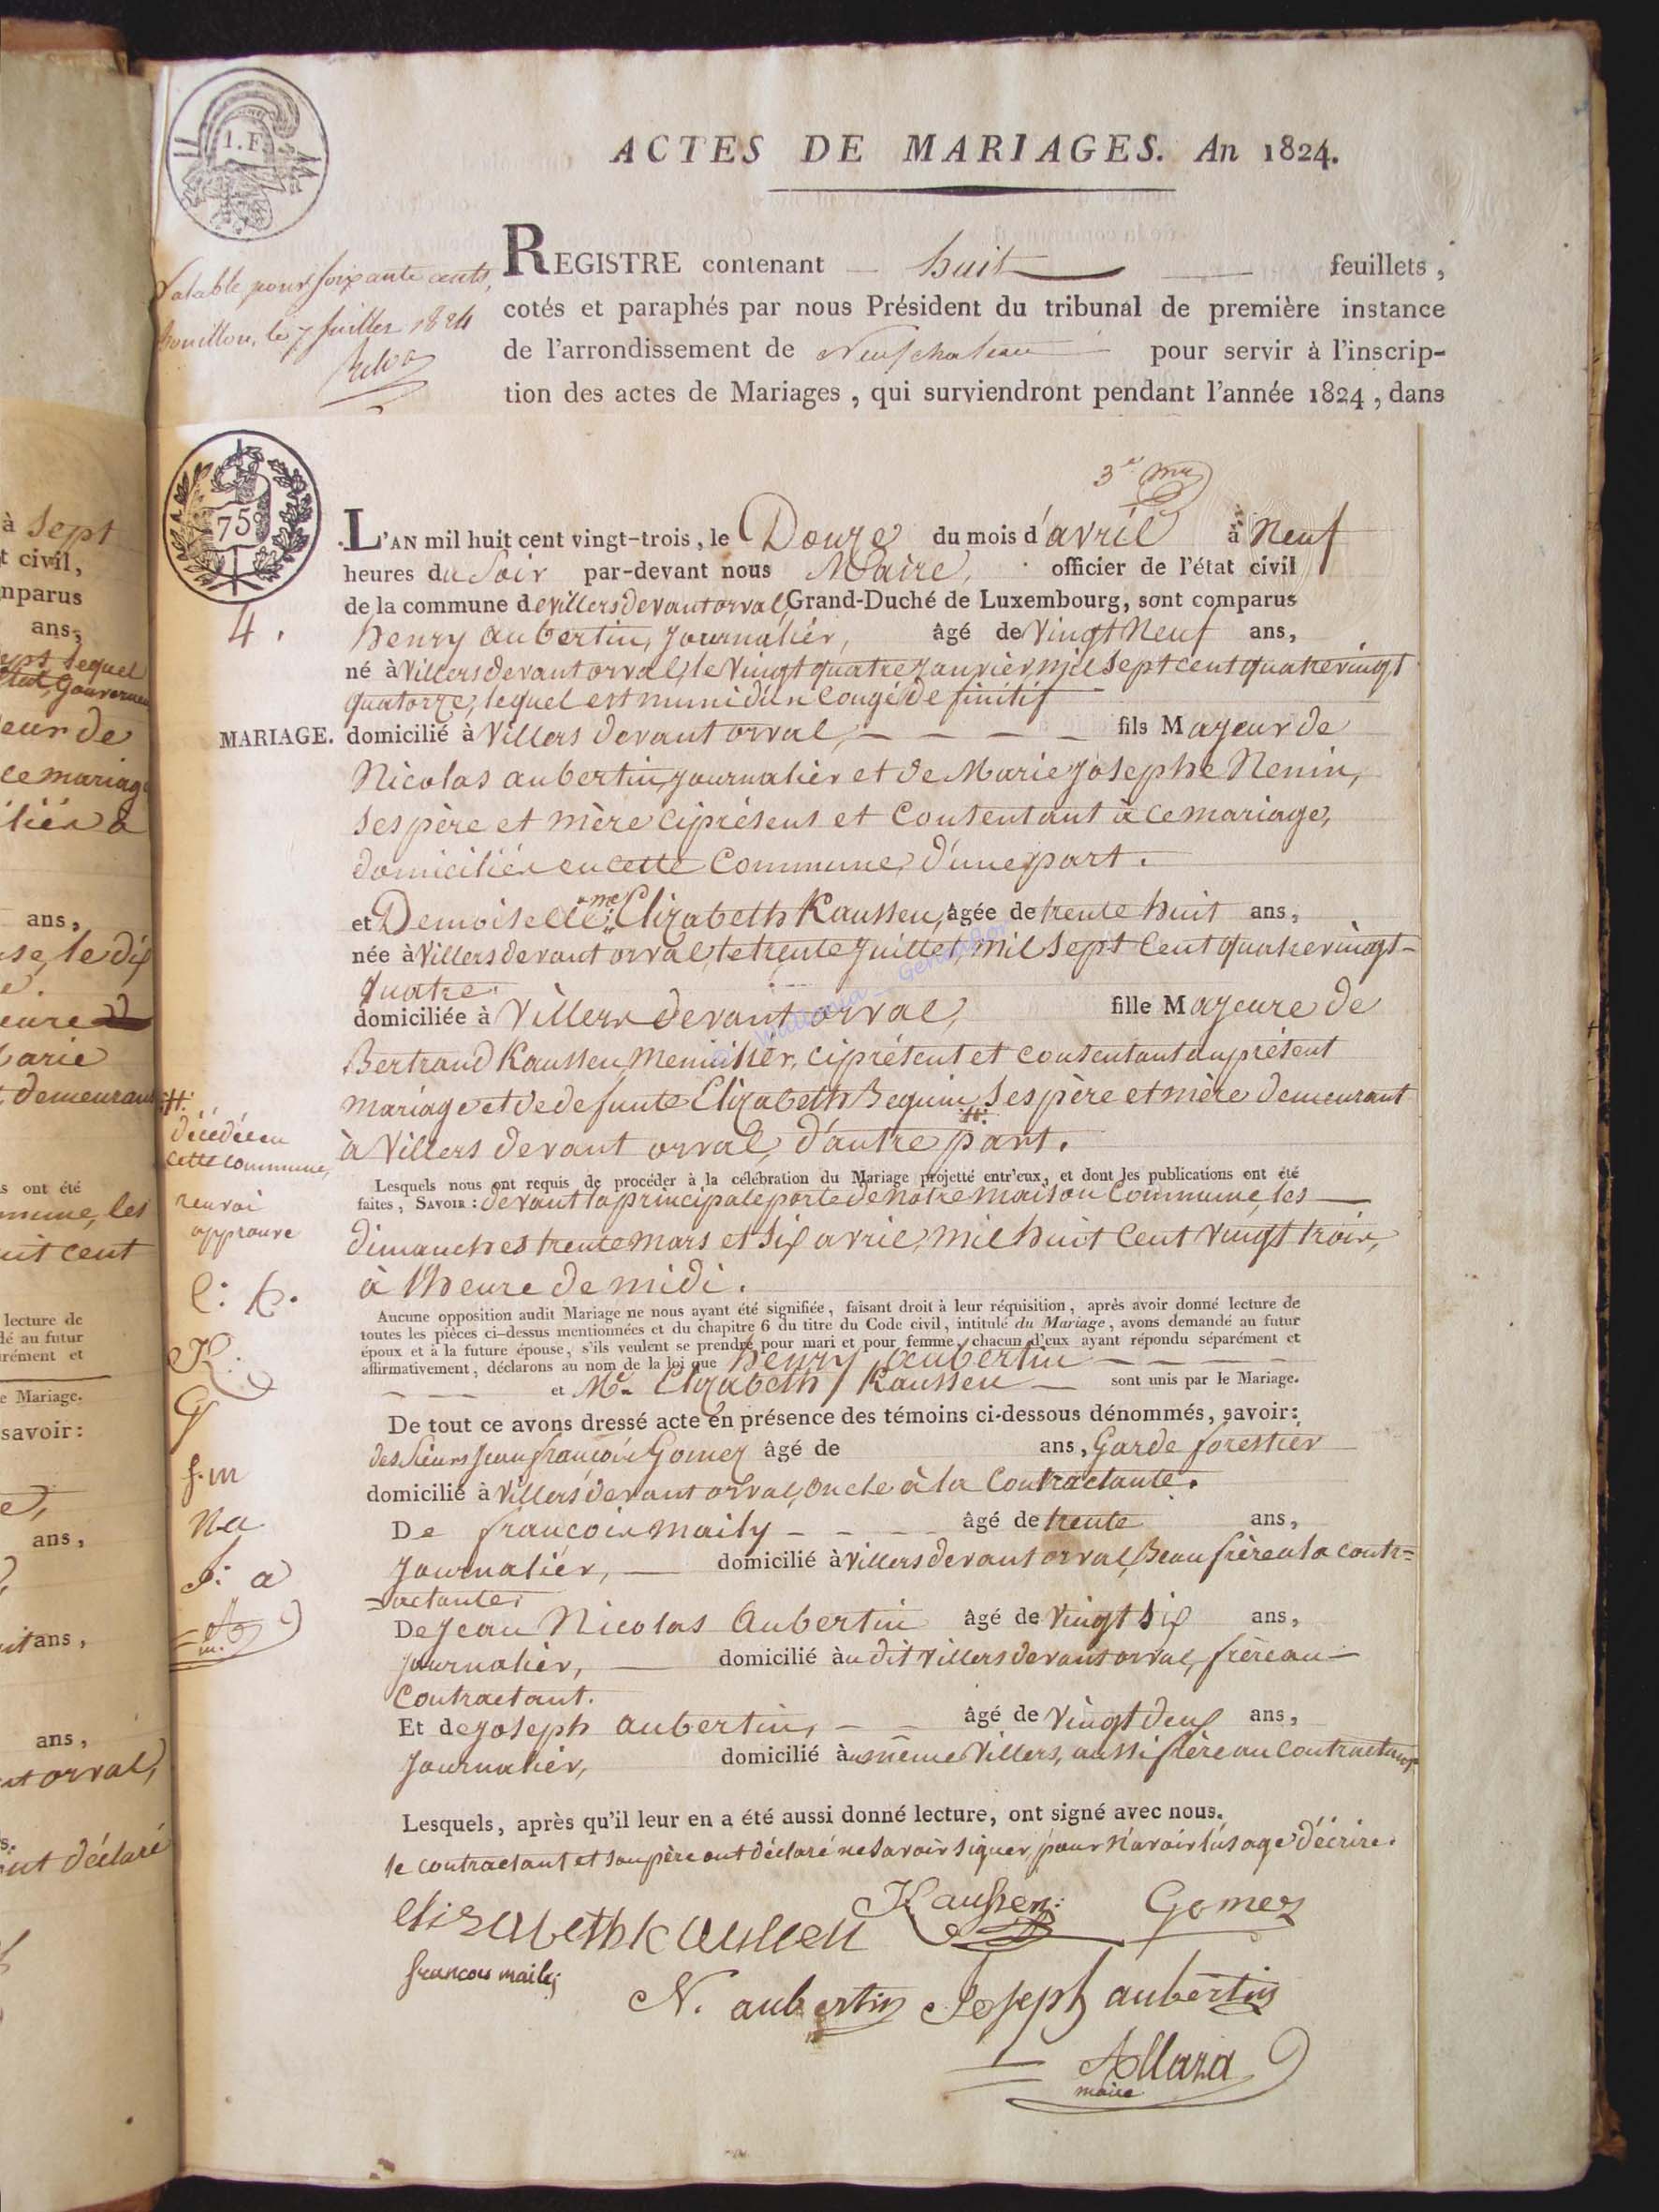 1. F.
ACTES DE MARIAGES. An 1824.
REGISTRE contenant huit feuillets,
cotés et paraphés par nous Président du tribunal de première instance
de l'arrondissement de Neufchateau pour servir à l'inscrip-
tion des actes de Mariages, qui surviendront pendant l'année 1824, dans
Valable pour soixante cents,
Bouillon, le 7 Juillet 1824
75
3e
L'AN mil huit cent vingt-trois, le Douze du mois d'avril à Neuf
heures du Soir par-devant nous Maire, officier de l'état civil
de la commune de villers devant orval Grand-Duché de Luxembourg, sont comparus
4.
henry aubertin, Journalier, âgé de Vingt Neuf ans,
né à Villers devant orval, le Vingt quatre Janvier, mil sept cent quatre vingt
quatorze, lequel est muni d'un Congé Definitif
MARIAGE. domicilié à Villers devant orval, fils Majeur de
Nicolas aubertin, journalier et de Marie Josephe Nenin,
Ses père et mère ciprésens et Consentant à ce mariage,
domiciliés en cette Commune, d'une part.
et Demoiselle me Elizabeth Kaussen, âgée de trente huit ans,
née à Villers devant orval, le trente Juillet, mil sept Cent quatre vingt-
quatre.
domiciliée à Villers devant orval, fille Majeure de
Bertrand Kaussen, Menuisier, ciprésent et consentant au présent
mariage et de defunte Elizabeth Bequin, Ses père et mère demeurant
à Villers devant orval, d'autre part.
décédée en
cette commune,
renvoi
approuvé
E: K.
K:
G
f. m
N a
J: a
m.
Lesquels nous ont requis de procéder à la célébration du Mariage projetté entr'eux, et dont les publications ont été
faites, SAVOIR: devant la principale porte de notre maison Commune, les
dimanches trente mars et Six avril, mil huit Cent vingt trois,
à l'heure de midi.
Aucune opposition audit Mariage ne nous ayant été signifiée, faisant droit à leur réquisition, après avoir donné lecture de
toutes les pièces ci-dessus mentionnées et du chapitre 6 du titre du Code civil, intitulé du Mariage, avons demandé au futur
époux et à la future épouse, s'ils veulent se prendre pour mari et pour femme, chacun d'eux ayant répondu séparément et
affirmativement, déclarons au nom de la loi que henry Aubertin
et Me Elizabeth Kaussen sont unis par le Mariage.
De tout ce avons dressé acte en présence des témoins ci-dessous dénommés, savoir:
des Sieurs Jean françois Gomez âgé de ans, Garde forestier
domicilié à Villers devant orval, oncle à la Contractante.
De françois maily âgé de trente ans,
Journalier, domicilié à villers devant orval, Beau frère a la contr=
=actante.
De Jean Nicolas Aubertin âgé de Vingt six ans,
Journalier, domicilié au dit villers devant orval, frère au
Contractant.
Et de Joseph aubertin, âgé de Vingt deux ans,
Journalier, domicilié au même Villers, aussi frère au Contractant
Lesquels, après qu'il leur en a été aussi donné lecture, ont signé avec nous.
le contractant et son père ont déclaré ne Savoir signer, pour n'avoir l'usage d'écrire.
elisabeth kaussen Kaussen Gomez
francois maily N. aubertin Joseph aubertin
Allara
maire
à Sept
t civil,
mparus
ans,
lequel
eur de
ce mariage
ans,
se, le dix
eure
Marie
demeurant
s ont été
mmune, les
uit cent
lecture de
dé au futur
rément et
e Mariage.
savoir:
ans,
ans,
ans,
nt orval,
ont déclaré